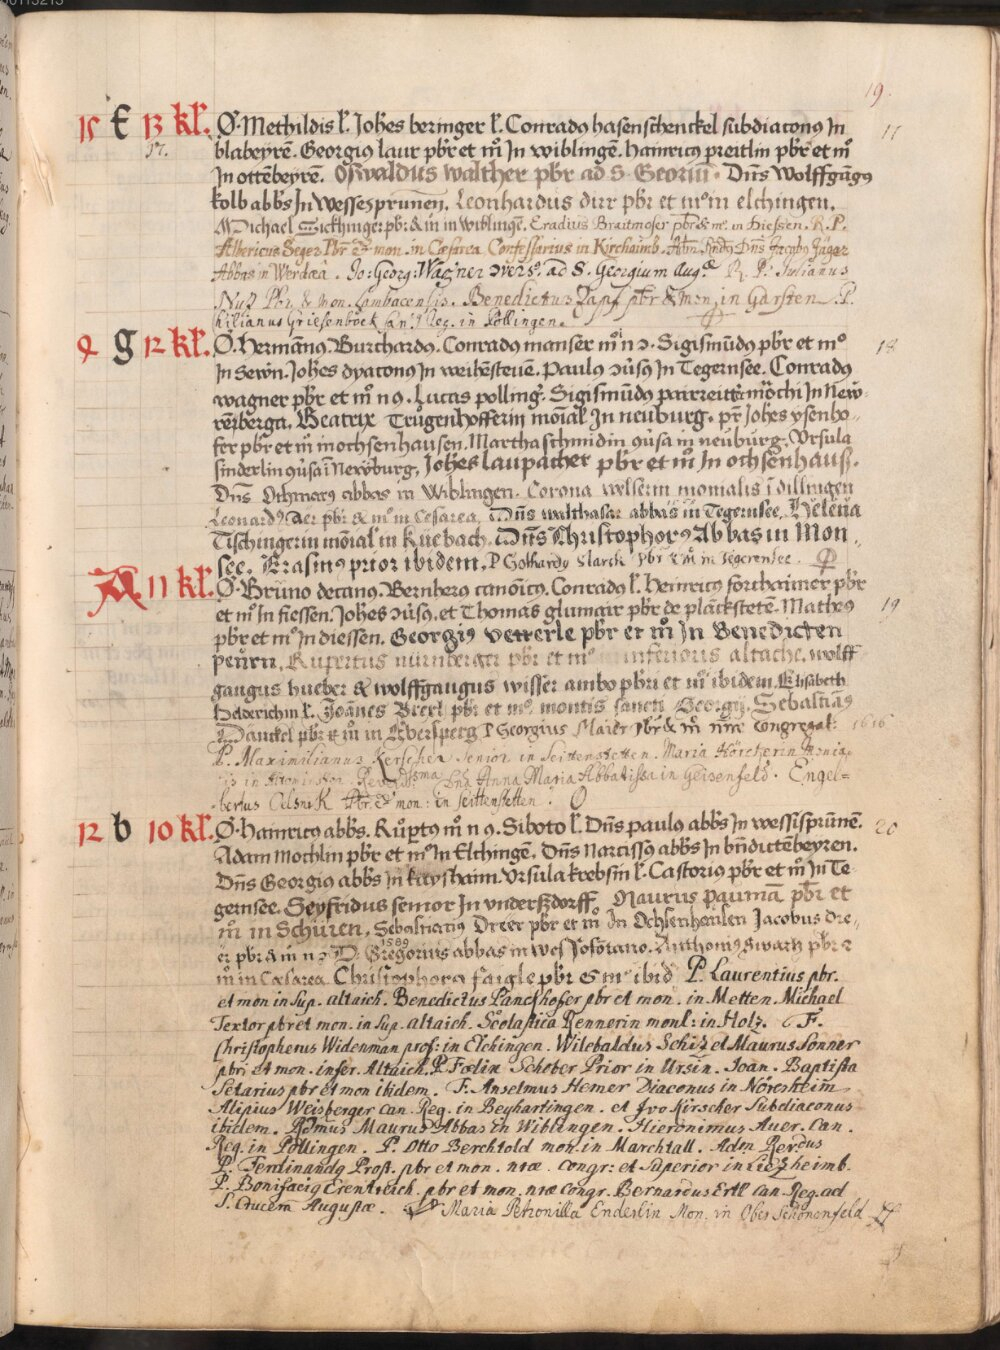 19.
15 E 13 kl. O. Methildis l. Joħes beringer l. Conradꝰ hasenschenckel subdiaconꝰ In 17
17. blabeyrē. Georgiꝰ laur pbr et m̊ In wiblingē. hainricꝰ preitlin pbr et m̊
In ottēbeyrē. Oswaldus walther pbr ad S. Georiū. Dn̄s Wolffgāgꝰ
kolb abbs In Wessesprunnen. Leonhardus durr pbr et m̊ in elchingen.
Michael Sickhinger pbr & m̄ in wiblingē. Eradius Braitmoser pbr & m̊ in Diessen. R. P.
Albericus Seger Pbr & mon. in Cæsarea Confessarius in Kirchaimb. Dn̄s Jacobꝰ Jäger
Abbas in Werdea. Jo: Georg: Wagner ad S. Georgium Aug. R. P. Julianus
Nuz Pbr & mon. Lambacensis. Benedictus Zapf pbr & mon. in Garsten. P.
hilianus Griesenböck Can. Reg. in Pollingen.
9 g 12 kl. O. Hermānꝰ. Burchardꝰ. Conradꝰ manser m̊ n ɔ. Sigismūdꝰ pbr et m̊ 18
In Sewn. Joħes dyaconꝰ In weihēsteuē. Paulꝰ ɔūsꝰ In Tegernsee. Conradꝰ
wagner pbr et m̊ n ꝯ. Lucas polling. Sigismūdꝰ parreitter mōchi In New
rēberga. Beatrix Trugenhofferin mōial In neuburg. pr Joħes ysenho
fer pbr et m̊ in ochsenhausen. Martha schmidin ꝯūsa in neuburg. Vrsula
sinderlin ꝯūsa ī Newburg. Joħes laupacher pbr et m̊ In ochsenhauß.
Dn̄s Othmarꝰ abbas in Wiblingen. Corona welserin monialis ī dillingen
Leonardꝰ Aer pbr & m̊ in Cesarea. Dn̄s walthasar abbas in Tegernsee. Helena
Tischingerin mōial in Kuebach. Dn̄s Christophorꝰ Abbas in Mon
see. Erasmꝰ prior ibidem. P Gothardꝰ Starck pbr & m̄ in Tegerensee.
A 11 kl. O. Bruno decanꝰ. Bernherꝰ canōicꝰ. Conradꝰ l. Heinricꝰ forchaimer pbr
et m̊ In fiessen. Joħes ɔūsꝰ. et Thomas glumair pbr de plāckstetē. Matheꝰ 19
pbr et m̊ In diessen. Georgiꝰ vetterle pbr et m̊ In Benedicten
peurn. Rupertus nürnberger pbr et m̊ inferioris altache. wolff
gaugus hueber & wolffgaugus wisser ambo pbri et m̄ ibidem. Elisabeth
Hederichin l. Joānes Beerl pbr et m̊ montis sancti Georgij. Sebastiāꝰ
Dānckel pbr & m̄ in Ebersperg P Georgius Maier pbr & m̄ nr̄e congregat: 1616
P. Maximilianus Kerscher Senior in Seittenstetten. Maria Hörcherin monia
lis in Altominster. Reverdssma Dn̄a Anna Maria Abbatissa in Geisenfeld. Engel=
bertus Oelsnik Pbr. & mon: in Seittenstetten.
12 b 10 kl. O. Hainricꝰ abbs. Růptꝰ m̊ n ꝯ. Siboto l. Dn̄s paulꝰ abbs In wessisprūnē. 20
Adam Mochlin pbr et m̊ In Elchingē. Dn̄s Narcissꝰ abbs In bn̄dictēbeyren.
Dn̄s Georgiꝰ abbs In kayshaim. Vrsula krebsin l. Castoriꝰ pbr et m̊ In Te
gernsee. Seyfridus senior In vnderßdorff. Maurus Paumā pbr et
m̄ in Scheiren. Sebastianꝰ Dreer pbr et m̊ In Ochsenheusen Jacobus Dre
er pbr & m̄ n ɔ. D. 1589 Gregorius abbas in Wesosofōtano. Anthoniꝰ Swartz pbr &
m̄ in Cæsarea Christophorꝰ faigle pbr & m̊ ibid P. Laurentius pbr.
et mon in Sup. altaich. Benedictus Panckhofer pbr et mon. in Metten. Michael
Textor pbr et mon. in Sup. altaich. Scolastica Rennerin monl: in Holz. F.
Christopherus Widenman prof: in Elchingen. Wilebaldus Schiz et Maurus Sonner
pbri et mon. infer. Altaich. P. Fœlix Schober Prior in Ursin. Joan. Baptista
Setarius pbr et mon ibidem. F. Anselmus Hemer Diaconus in Nöresheim
Alipius Weisberger can. Reg. in Beyhartingen. et Ivo Kirscher Subdiaconus
ibidem. Rdmus Maurus Abbas in Wiblingen. Hieronimus Auer. Can.
Reg. in Pollingen. P. Otto Berchtold mon. in Marchtall. Adm Rev.dus
P. Ferdinandꝰ Prost. pbr et mon. nræ. congr: et Superior in Liezheimb.
P. Bonifaciꝰ Erentreich. pbr et mon. nræ Congr. Bernardus Ertl Can. Reg. ad
S. Crucem Augustæ. Maria Petronilla Enderlin Mon. in Ober Schönenfeld